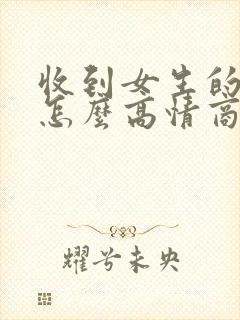 收到女生的
怎麼高情商
耀兮未央